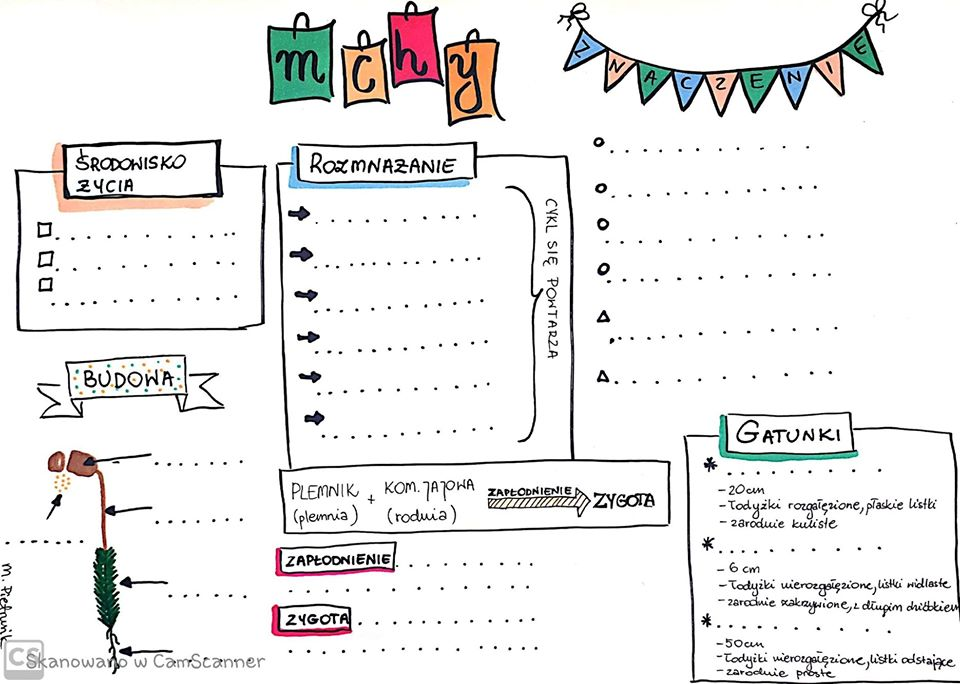 mchy
ZNACZENIE
ŚRODOWISKO
ŻYCIA
ROZMNAŻANIE
CYKL SIĘ POWTARZA
BUDOWA
PLEMNIK + KOM. JAJOWA ZAPŁODNIENIE ZYGOTA
(plemnia) (rodnia)
ZAPŁODNIENIE
ZYGOTA
GATUNKI
- 20cm
- łodyżki rozgałęzione, płaskie listki
- zarodnie kuliste
- 6 cm
- łodyżki nierozgałęzione, listki widlaste
- zarodnie zakrzywione, z długim dzióbkiem
- 50cm
- łodyżki nierozgałęzione, listki odstające
- zarodnie proste
CS Skanowano w CamScanner